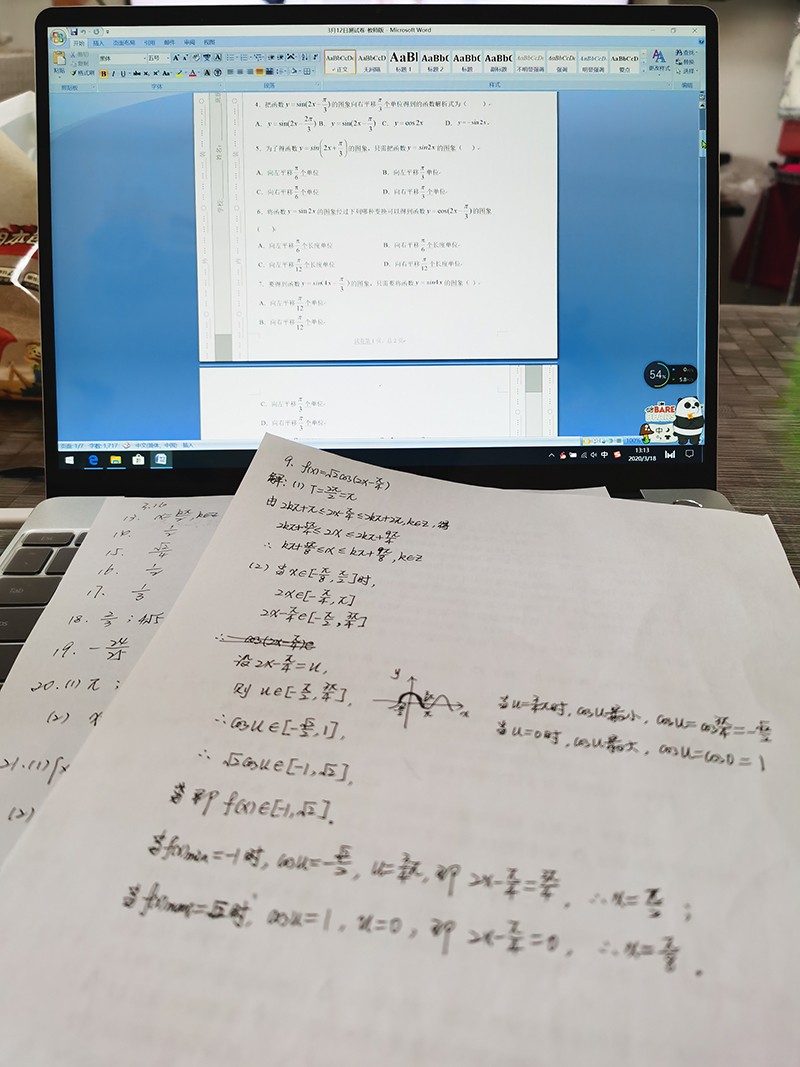 3月12日测试卷 教师版 - Microsoft Word
开始 插入 页面布局 引用 邮件 审阅 视图
粘贴 格式刷 黑体 五号
AaBbCcDc AaBbCcDc AaBl AaBbC AaBbC AaBbC
正文 无间隔 标题 1 标题 2 标题 副标题 不明显强调 强调 明显强调 要点
更改样式 查找 替换 选择
剪贴板 字体 段落 样式 编辑
4. 把函数y=sin(2x-π/3)的图象向右平移π/3个单位得到的函数解析式为（ ）.
A. y=sin(2x-2π/3) B. y=sin(2x-π/3) C. y=cos2x D. y=-sin2x.
5. 为了得函数y=sin(2x+π/3)的图象，只需把函数y=sin2x的图象（ ）.
A. 向左平移π/6个单位 B. 向左平移π/3单位.
C. 向右平移π/6个单位 D. 向右平移π/3个单位.
6. 将函数y=sin2x的图象经过下列哪种变换可以得到函数y=cos(2x-π/3)的图象
（ ）.
A. 向左平移π/6个长度单位 B. 向右平移π/6个长度单位.
C. 向左平移π/12个长度单位 D. 向右平移π/12个长度单位.
7. 要得到函数y=sin(4x-π/3)的图象，只需要将函数y=sin4x的图象（ ）.
A. 向左平移π/12个单位.
B. 向右平移π/12个单位.
C. 向左平移π/3个单位.
D. 向右平移π/3个单位.
页面: 1/7 字数: 1,717 中文(简体, 中国) 插入 100%
54%
BARE
中
13:13
2020/3/18
9. f(x)=√2cos(2x-π/4)
解: (1) T=2π/2=π
由 2kπ+π≤2x-π/4≤2kπ+2π, k∈Z, 得
2kπ+5π/4≤2x≤2kπ+9π/4
∴ kπ+5π/8≤x≤kπ+9π/8, k∈Z
(2) 当x∈[-π/8, π/2]时,
2x∈[-π/4, π]
2x-π/4∈[-π/2, 3π/4]
∴ cos(2x-π/4)∈
设2x-π/4=u,
则 u∈[-π/2, 3π/4],
∴cosu∈[-√2/2, 1],
∴ √2cosu∈[-1, √2],
即 f(x)∈[-1, √2].
y
x
当u=3/4π时, cosu最小, cosu=cos3π/4=-√2/2
当u=0时, cosu最大, cosu=cos0=1
当f(x)min=-1时, cosu=-√2/2, u=3/4π, 即 2x-π/4=3π/4, ∴x=π/2;
当f(x)max=√2时, cosu=1, u=0, 即 2x-π/4=0, ∴x=π/8.
3.16
13. x=kπ/2, k∈Z
14.
15. √2/4
16. 1/4
17. 1/3
18. 2/3;
19. -24/25
20. (1) π;
(2) x
21. (1) {x
(2)